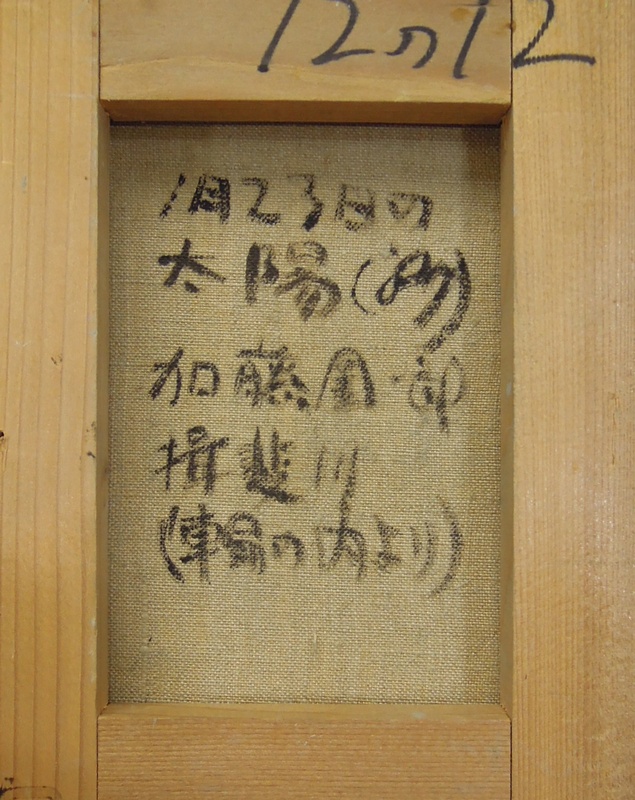 12の12
1月23日の
太陽
加藤金一郎
揖斐川
の内より)